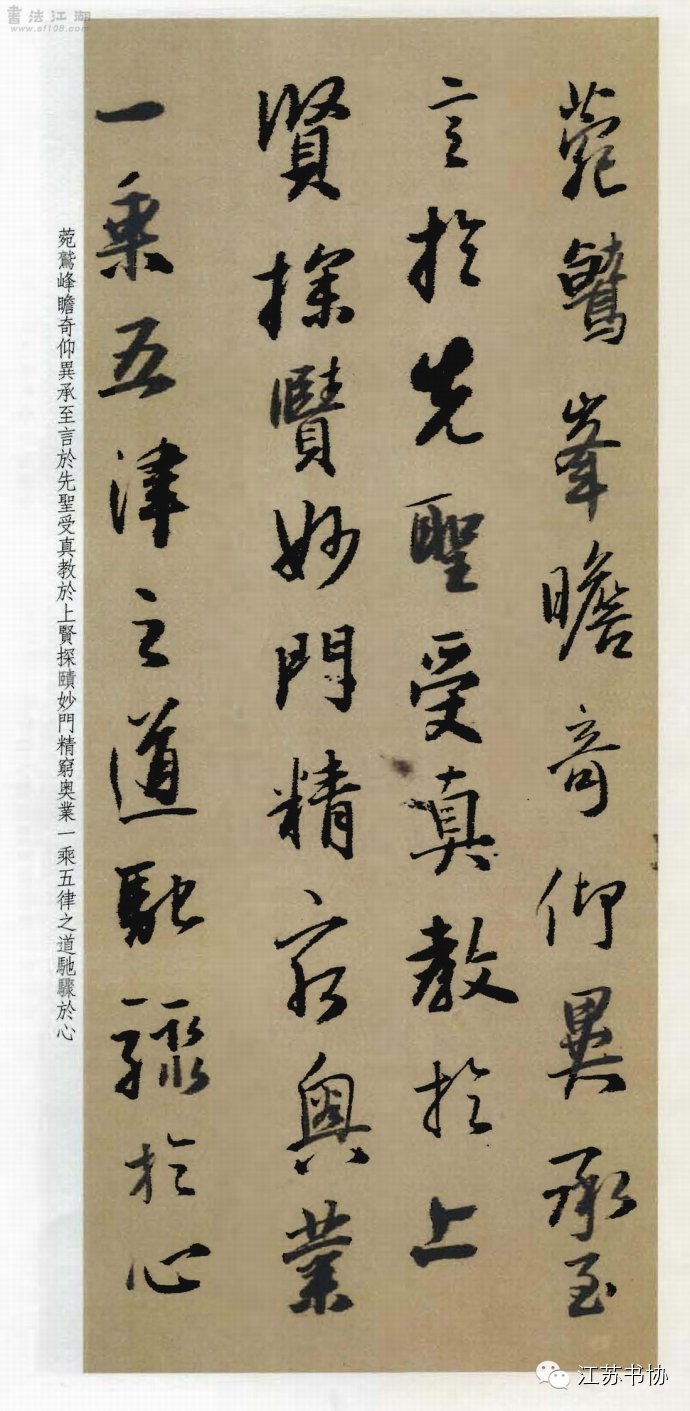 菀鷲峯瞻奇仰異承至
言於先聖受真教於上
賢探賾妙門精窮奧業
一乘五律之道馳驟於心
菀鷲峰瞻奇仰異承至言於先聖受真教於上賢探賾妙門精窮奧業一乘五律之道馳驟於心
書法江湖
www.sf108.com
江苏书协